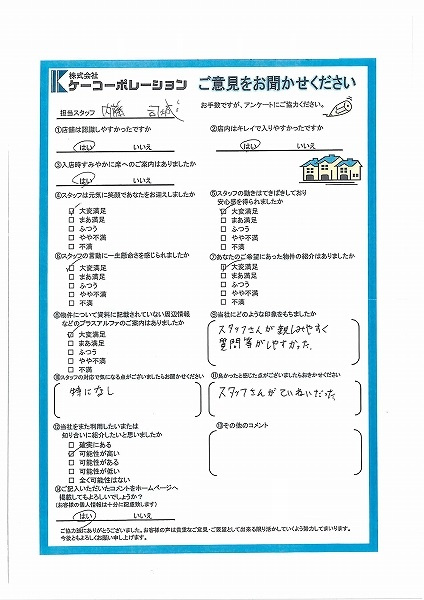 株式会社
ケーコーポレーション
ご意見をお聞かせください
お手数ですが、アンケートにご協力ください。
担当スタッフ 内藤
①店舗は認識しやすかったですか
はい いいえ
②店内はキレイで入りやすかったですか
はい いいえ
③入店時すみやかに席へのご案内はありましたか
はい いいえ
④スタッフは元気に笑顔であなたをお迎えしましたか
大変満足
まあ満足
ふつう
やや不満
不満
⑤スタッフの動きはてきぱきしており
安心感を得られましたか
大変満足
まあ満足
ふつう
やや不満
不満
⑥スタッフの言動に一生懸命さを感じられましたか
大変満足
まあ満足
ふつう
やや不満
不満
⑦あなたのご希望にあった物件の紹介はありましたか
大変満足
まあ満足
ふつう
やや不満
不満
⑧物件について資料に記載されていない周辺情報
などのプラスアルファのご案内はありましたか
大変満足
まあ満足
ふつう
やや不満
不満
⑨当社にどのような印象をもちましたか
スタッフさんが親しみやすく
質問等がしやすかった。
⑩スタッフの対応で気になる点がございましたらお聞かせください
特になし
⑪良かったと感じた点がございましたらおきかせください
スタッフさんがていねいだった。
⑫当社をまた利用したいまたは
知り合いに紹介したいと思いましたか
確実にある
可能性が高い
可能性がある
可能性が低い
全く可能性はない
⑬その他のコメント
⑭ご記入いただいたコメントをホームページへ
掲載してもよろしいでしょうか？
(お客様の個人情報は十分に配慮致します)
はい いいえ
ご協力誠にありがとうございました。お客様の声は貴重なご意見・ご要望として出来る限り活かしていくよう努力してまいります。
今後ともよろしくお願い申し上げます。